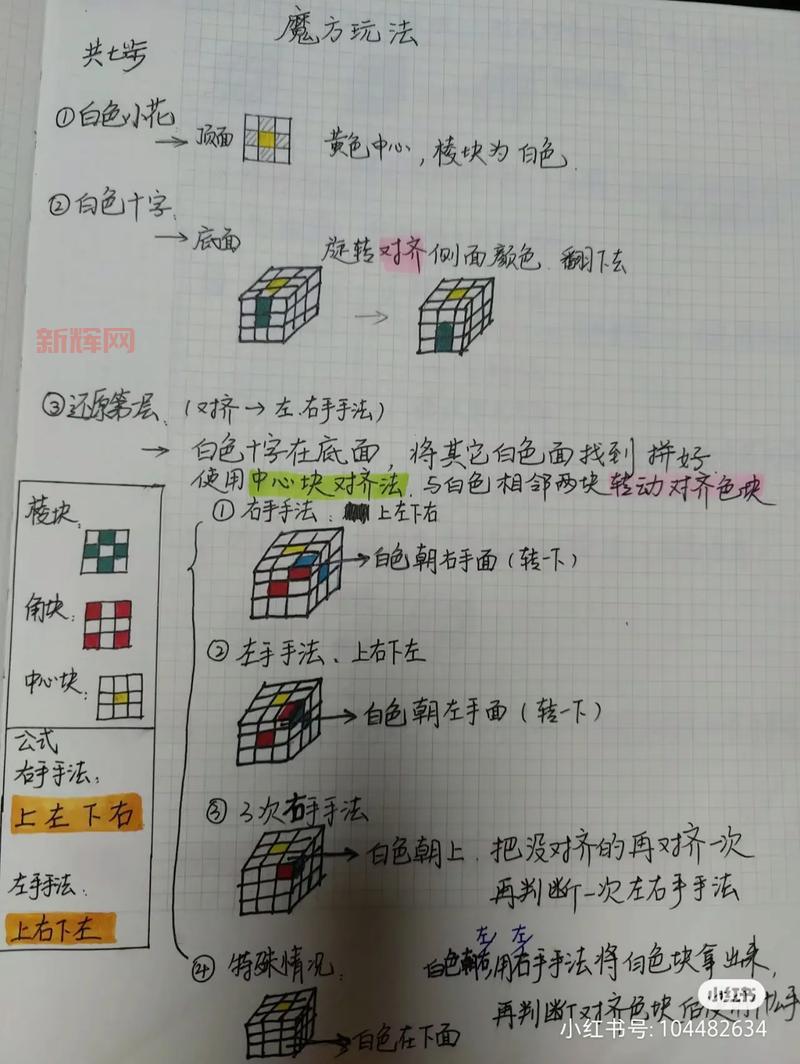 魔方玩法
共七步
①白色小花
→ 顶面
黄色中心，棱块为白色.
②白色十字.
→底面
旋转对齐侧面颜色. 翻下去
新辉网
③还原第层.（对齐→左.右手手法）
→ 白色十字在底面，将其它白色面找到拼好.
使用中心块对齐法.与白色相邻两块转动对齐色块
①右手手法： 上左下右
→白色朝右手面（转一下）
②左手手法、上右下左
→白色朝左手面（转一下）
③3次右手手法
→白色朝上.把没对齐的再对齐一次
再判断一次左右手手法
④特殊情况.
左 左
白色朝右,用右手手法将白色块拿出来,
再判断对齐色块
→白色在下面
棱块:
角块:
中心块:
公式
右手手法:
上左下右
左手手法:
上右下左
小红书
小红书号: 104482634